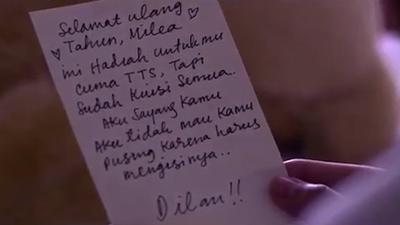 Selamat ulang
Tahun, Milea
ini Hadiah untukmu
cuma TTS, Tapi
sudah kuisi semua..
Aku sayang kamu
Aku tidak mau kamu
pusing karena harus
mengisinya..
Dilan!!